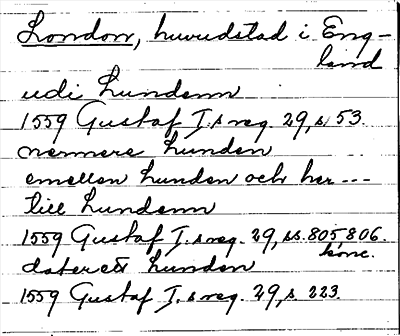 London, huvudstad i Eng-
land
udi Lundenn
1559 Gustaf I.s reg. 29, s. 53.
nermere Lunden
emellan Lunden och her ---
till Lundenn
1559 Gustaf I.s reg. 29, ss. 805 806.
konc.
daterett Lunden
1559 Gustaf I.s reg. 29, s. 223.